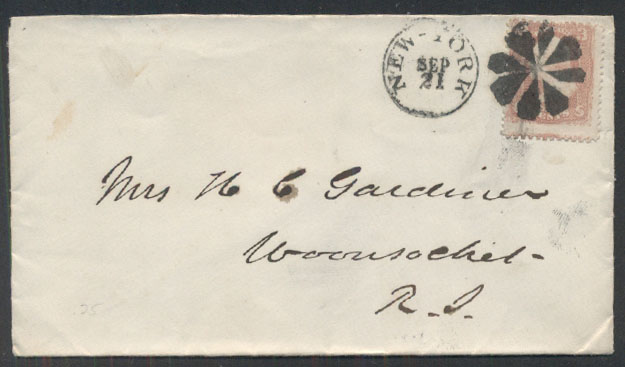 NEW-YORK
SEP
21
Mrs H C Gardiner
Woonsocket
R. I.
.25